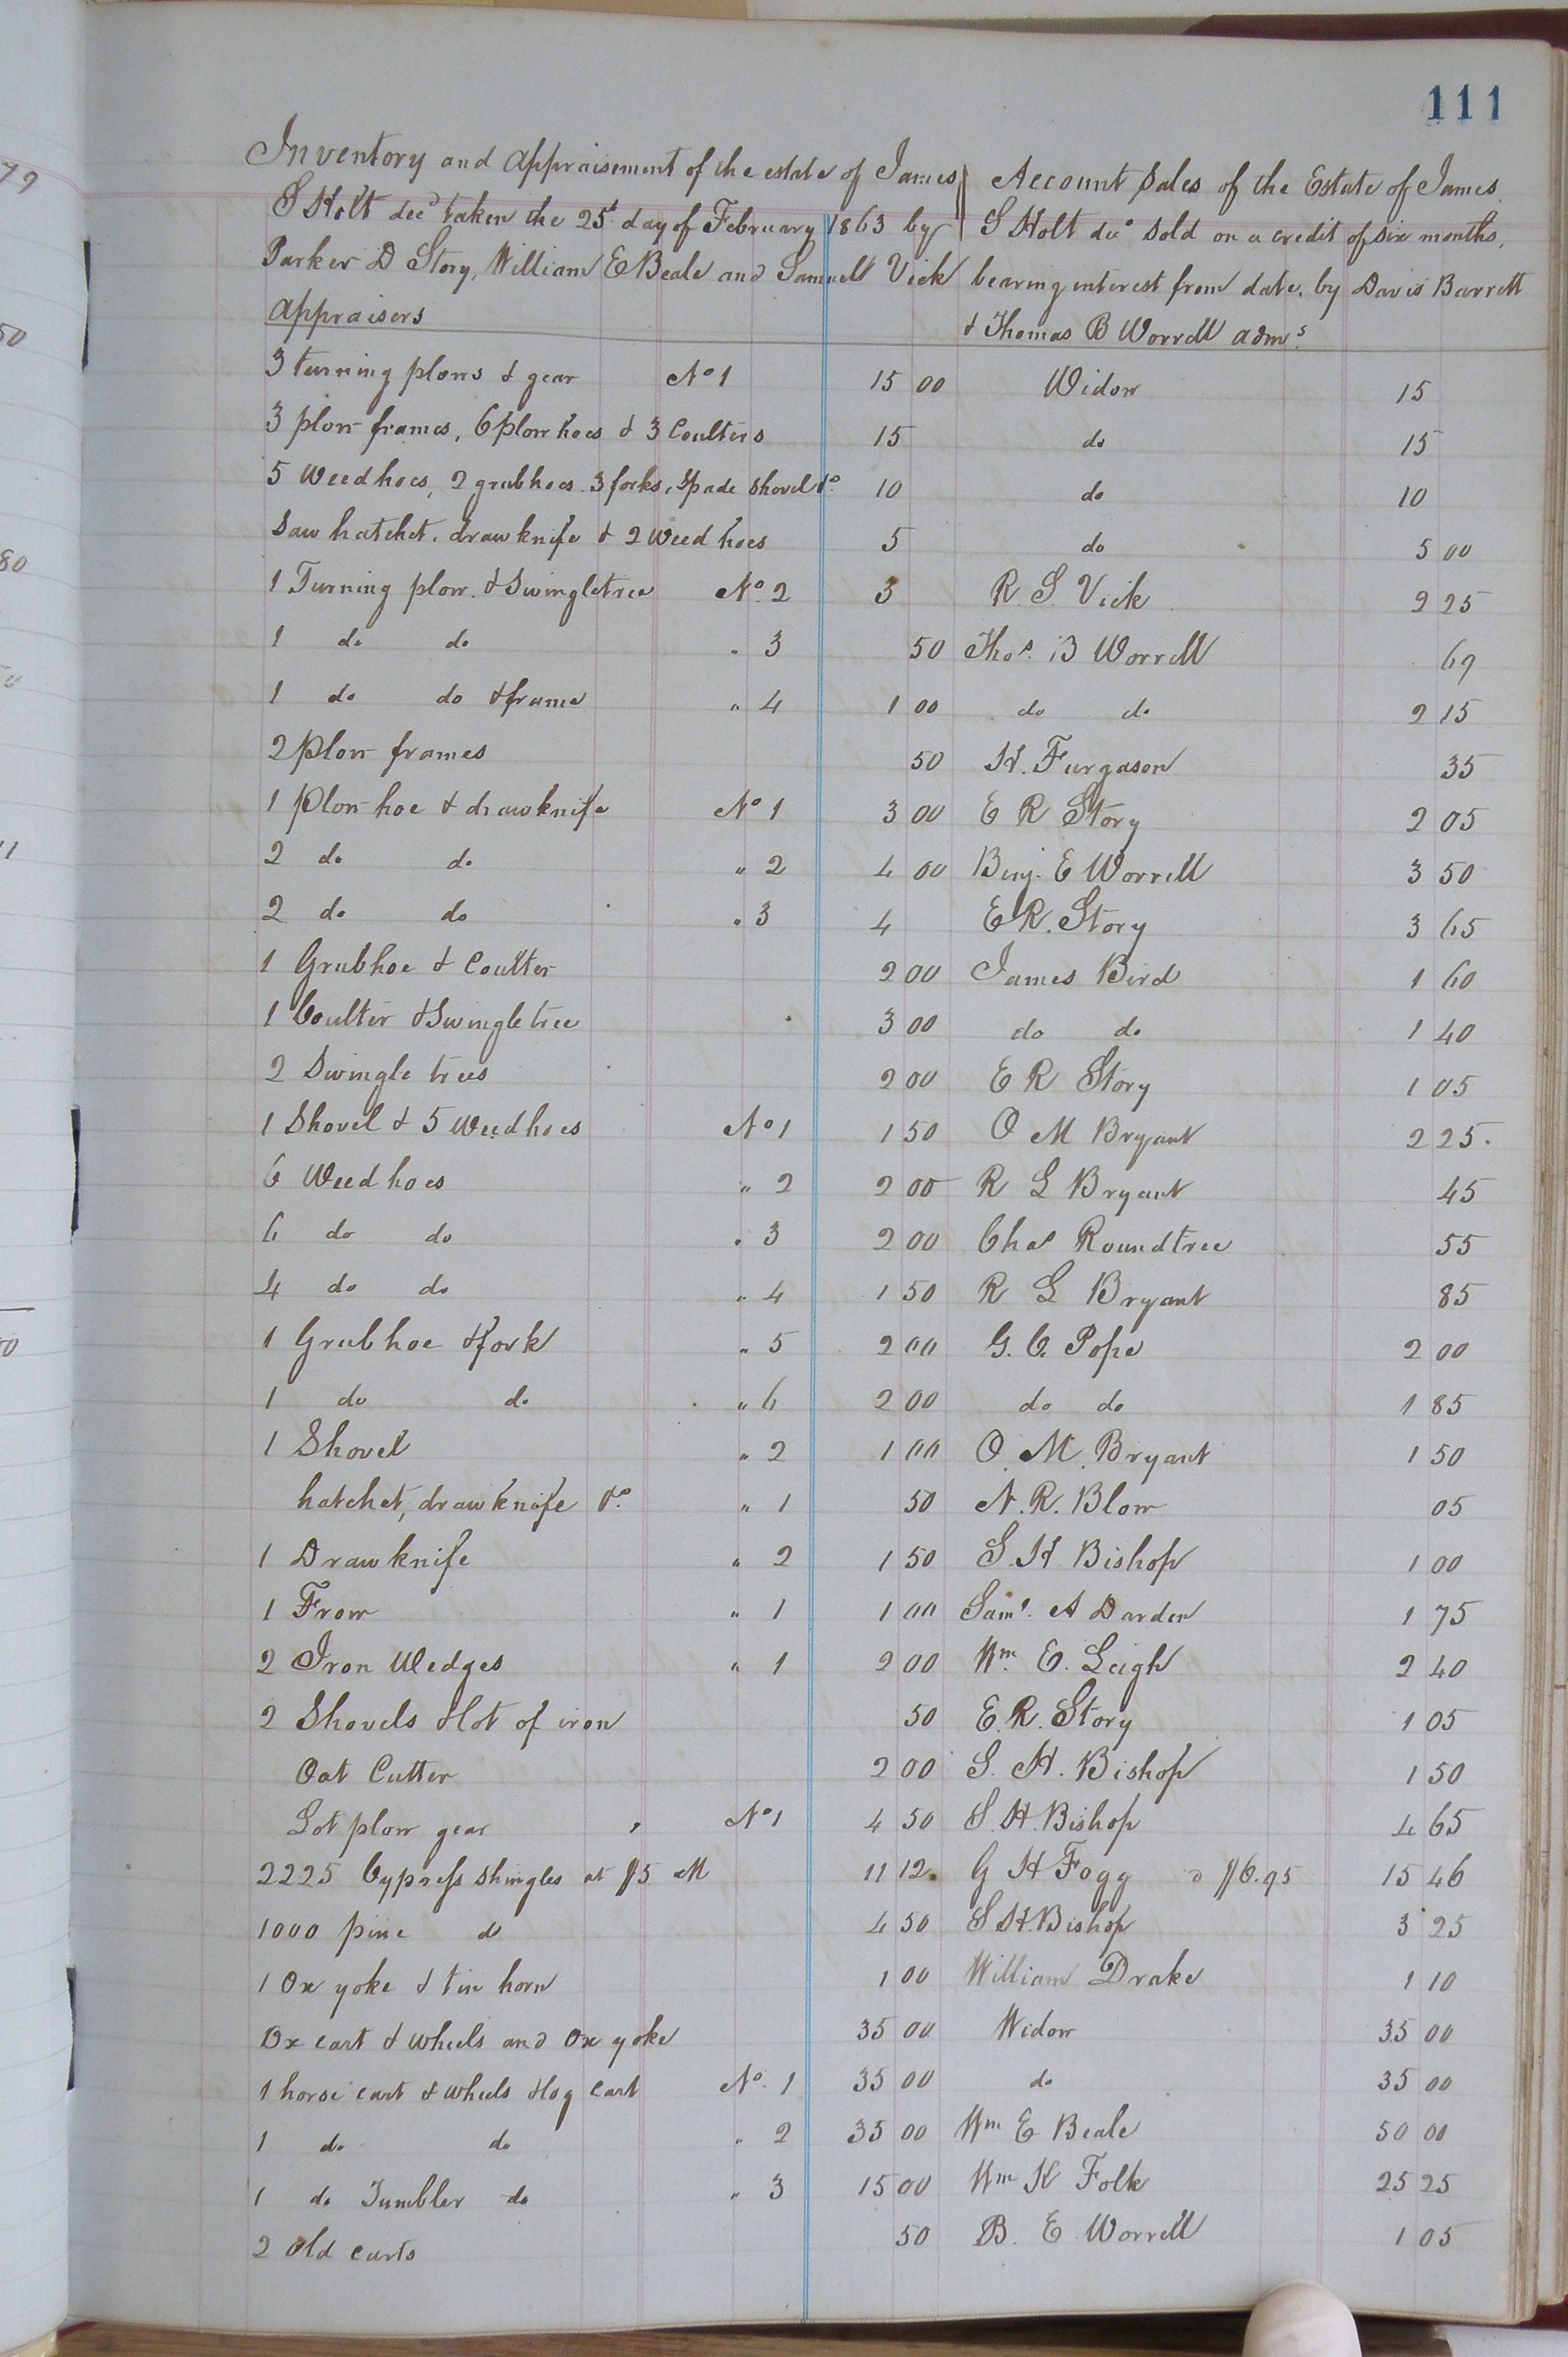 111
Inventory and appraisement of the estate of James
S Holt decd taken the 25t day of February 1863 by
Parker D Story, William E Beale and Samuel Vick
appraisers
Account Sales of the Estate of James
S Holt decd Sold on a credit of six months,
bearing interest from date, by Davis Barrett
& Thomas B Worrell adms.
3 turning plows & gear No 1 15 00 Widow 15
3 plow frames, 6 plow hoes & 3 Coulters 15 do 15
5 Weedhoes, 2 grubhoes 3 forks, Spade Shovel &c 10 do 10
Saw hatchet, drawknife & 2 Weed hoes 5 do 5 00
1 Turning plow & Swingletree No. 2 3 R. S. Vick 2 25
1 do do " 3 50 Thos. B Worrell 69
1 do do & frame " 4 1 00 do do 2 15
2 Plow frames 50 H. Furgason 35
1 Plow hoe & drawknife No 1 3 00 E R Story 2 05
2 do do " 2 4 00 Benj. E Worrell 3 50
2 do do " 3 4 E R. Story 3 65
1 Grubhoe & Coulter 2 00 James Bird 1 60
1 Coulter & Swingletree 3 00 do do 1 40
2 Swingle trees 2 00 E R Story 1 05
1 Shovel & 5 Weedhoes No 1 1 50 O M Bryant 2 25.
6 Weedhoes " 2 2 00 R L Bryant 45
6 do do " 3 2 00 Chas Roundtree 55
4 do do " 4 1 50 R L Bryant 85
1 Grubhoe & fork " 5 2 00 G. C. Pope 2 00
1 do do " 6 2 00 do do 1 85
1 Shovel " 2 1 00 O. M. Bryant 1 50
hatchet, drawknife &c " 1 50 N. R. Blow 05
1 Drawknife " 2 1 50 S. H Bishop 1 00
1 Frow " 1 1 00 Saml. A Darden 1 75
2 Iron Wedges " 1 2 00 Wm. E. Leigh 2 40
2 Shovels & lot of iron 50 E. R. Story 1 05
Oat Cutter 2 00 S. H. Bishop 1 50
Lot plow gear No 1 4 50 S. H. Bishop 4 65
2225 Cypress Shingles at $5 M 11 12. G H Fogg @ $6.95 15 46
1000 pine do 4 50 S H. Bishop 3 25
1 Ox yoke & tin horn 1 00 William Drake 1 10
Ox cart & wheels and Ox yoke 35 00 Widow 35 00
1 horse cart & wheels & log Cart No. 1 35 00 do 35 00
1 do do " 2 35 00 Wm E Beale 50 00
1 do Tumbler do " 3 15 00 Wm K Folk 25 25
2 Old carts 50 B. E. Worrell 1 05